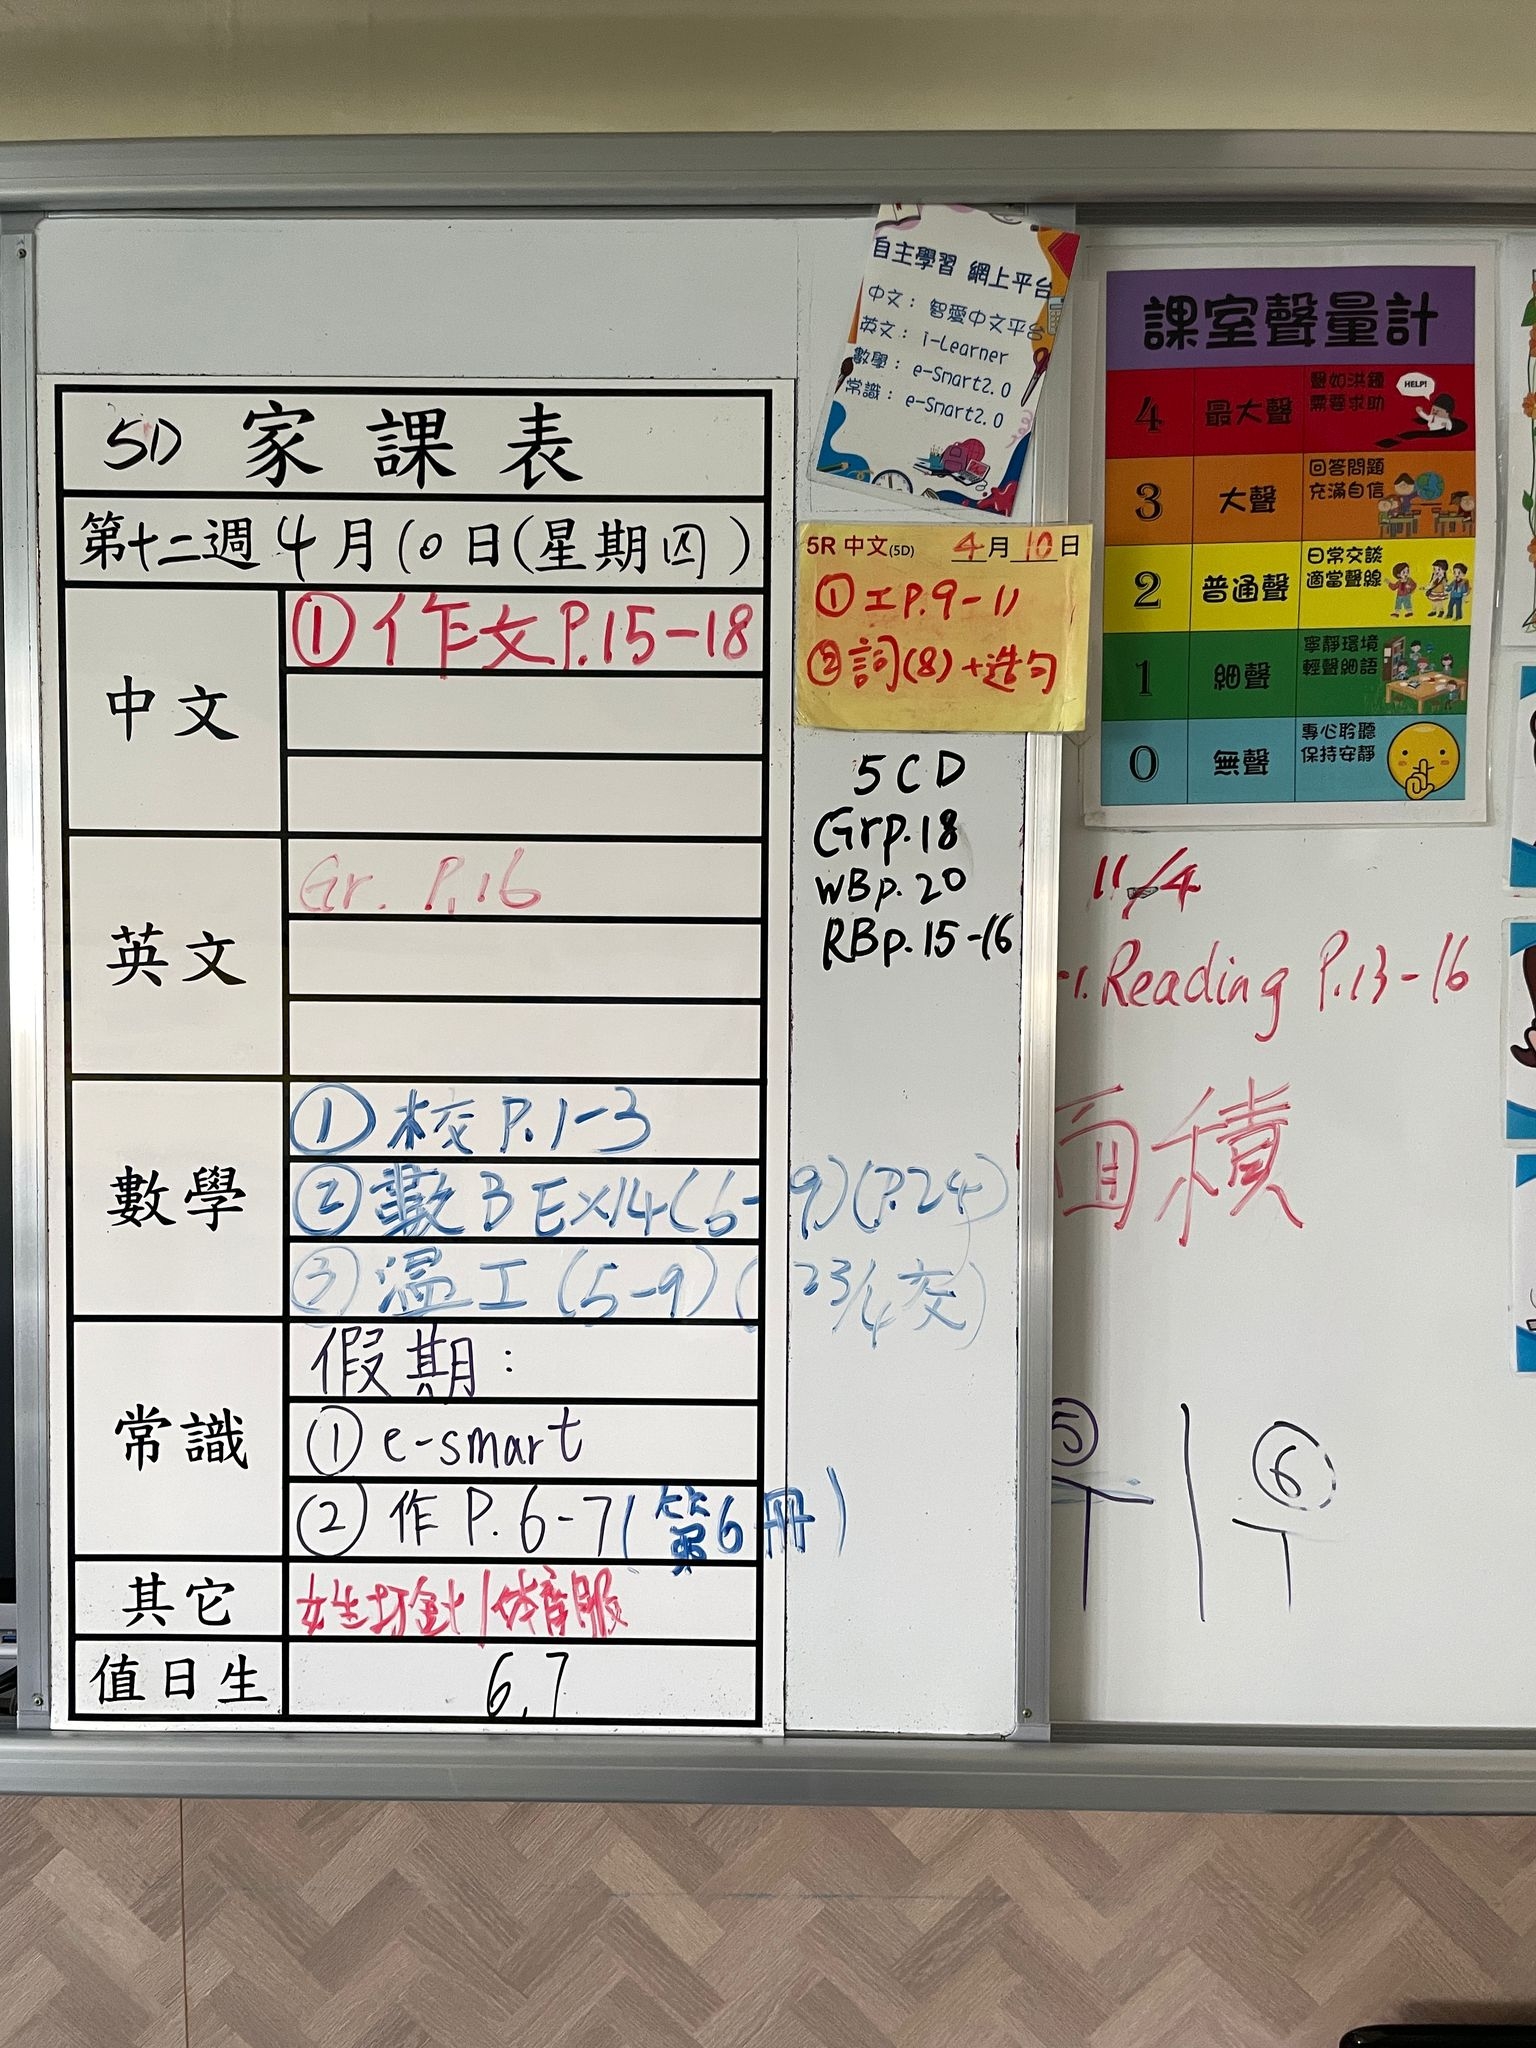 5D 家課表
第十二週 4月10日(星期四)
中文
① 作文 P.15-18
英文
Gr. P.16
數學
① 校 P.1-3
② 數B EX14(6-9)(P.24)
③ 溫工(5-9)(23/4交)
常識
假期：
① e-smart
② 作 P.6-7(第6冊)
其它
女生打針/体育服
值日生
6,7
自主學習 網上平台
中文：智愛中文平台
英文：i-Learner
數學：e-Smart2.0
常識：e-Smart2.0
5R 中文(5D) 4月10日
① 工P.9-11
② 詞(8)+造句
5CD
Gr p.18
WB p.20
RB p.15-16
課室聲量計
4 最大聲 聲如洪鐘 需要求助
HELP!
3 大聲 回答問題 充滿自信
2 普通聲 日常交談 適當聲線
1 細聲 寧靜環境 輕聲細語
0 無聲 專心聆聽 保持安靜
11/4
1. Reading P.13-16
面積
5
6